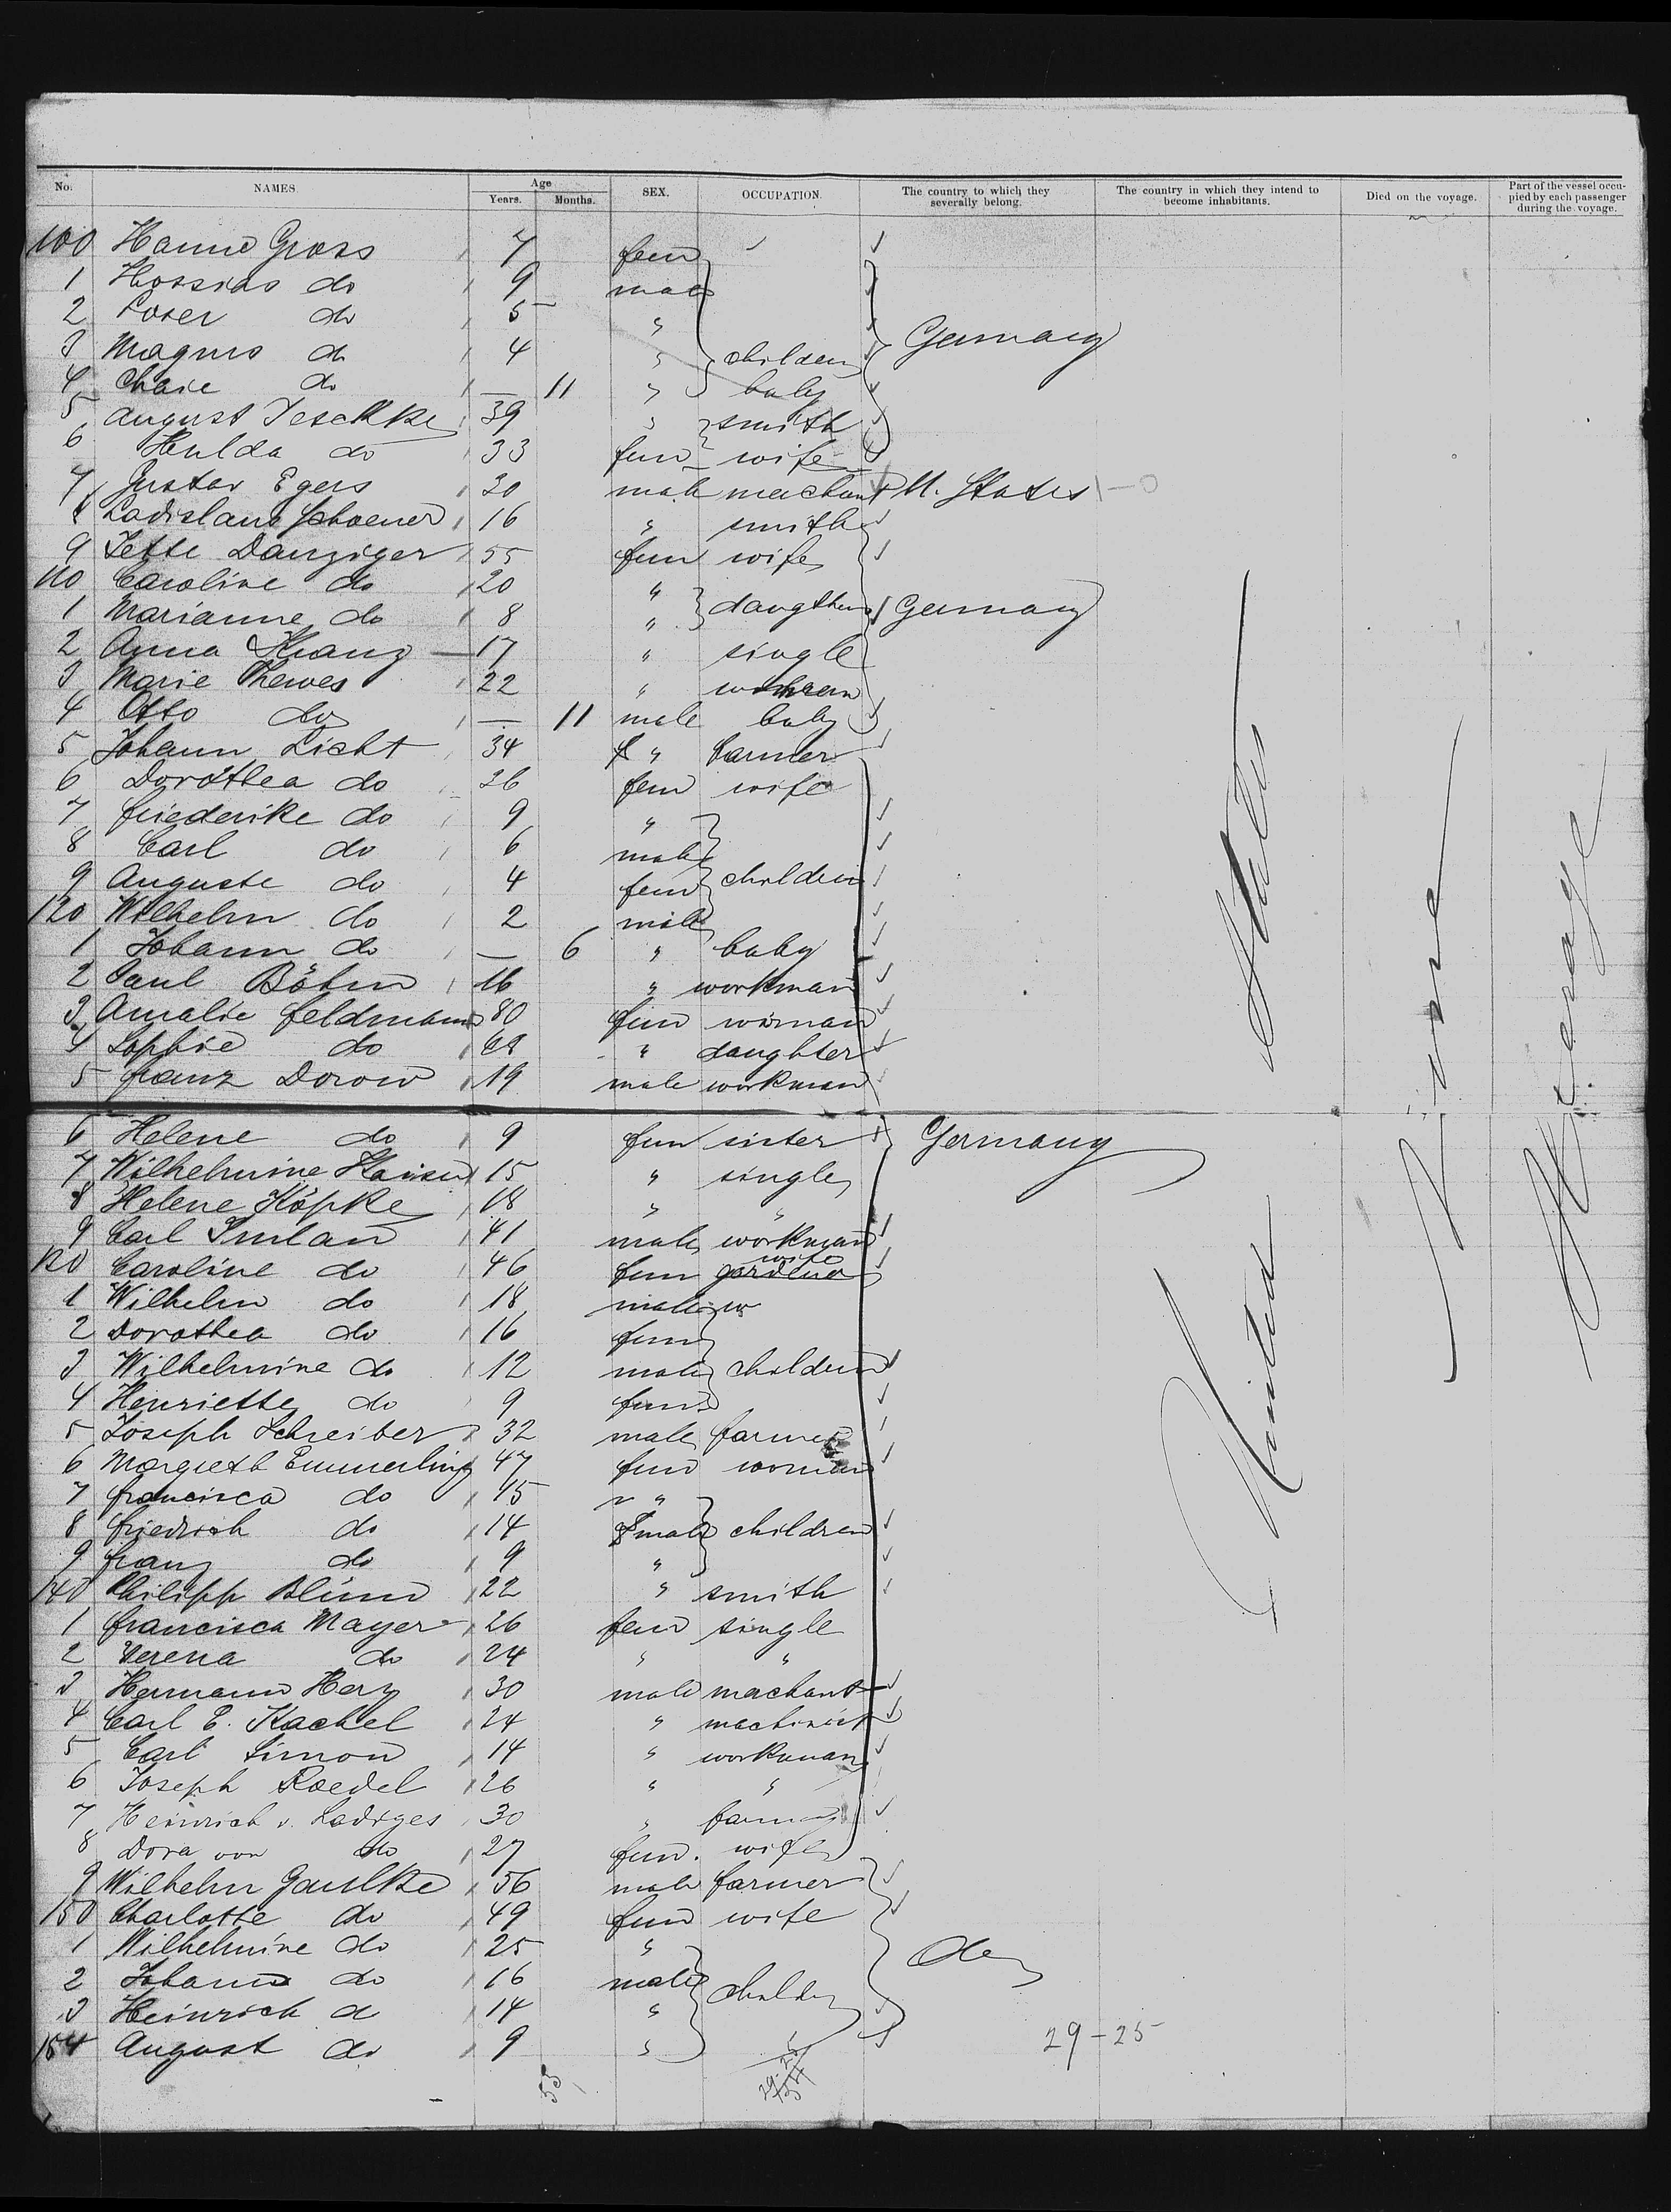 No. NAMES. Age Years. Months. SEX. OCCUPATION. The country to which they severally belong. The country in which they intend to become inhabitants. Died on the voyage. Part of the vessel occupied by each passenger during the voyage.
100 Hanne Gross 7 fem
1 do 9 male
2 Loser do 5 "
3 Magnus do 4 " children Germany
4 Chaie do — 11 " baby
5 August Jeschke 39 " smith
6 Hulda do 33 fem wife
7 Gustav Egers 30 male merchant U. States — 0
8 Ladislaus Schoener 16 " smith
9 Jette Danziger 55 fem wife
110 Caroline do 20 "
1 Marianne do 8 " daugthers Germany
2 Anna Kranz — 17 " single
3 Marie Thewes 22 "
4 Otto do — 11 male baby
5 Johann Licht 34 " farmer
6 Dorothea do 26 fem wife
7 Friederike do 9 "
8 Carl do 6 male
9 Auguste do 4 fem children
120 Wilhelm do 2 male
1 Johann do — 6 " baby
2 Paul Böhm 16 " workman
3 Amalie Feldmann 80 fem woman
4 Sophie do " daughter
5 Franz Dorow 19 male workman
6 Helene do 9 fem sister Germany
7 Wilhelmine Hansen 15 " single
8 Helene Köpke 18 " "
9 Carl 41 male workman
120 Caroline do 46 fem gardener wife
1 Wilhelm do 18 male
2 Dorothea do 16 fem
3 Wilhelmine do 12 male children
4 Henriette do 9 fem
5 Joseph Schreiber 32 male farmer
6 Margreth Emmerling 47 fem woman
7 Francisca do 15 "
8 Friedrich do 14 male children
9 Franz do 9 "
140 Philipp Blum 22 " smith
1 Francisca Mayer 26 fem single
2 Verena do 24 " "
3 Hermann Herz 30 male merchant
4 Carl E. Kachel 24 " machinist
5 Carl Simon 14 " workman
6 Joseph Roedel 26 " "
7 Heinrich v. Ladiges 30 " farmer
8 Dora von do 27 fem. wife
9 Wilhelm Gaulke 56 male farmer
150 Charlotte do 49 fem wife
1 Wilhelmine do 25 " do
2 Johann do 16 male
3 Heinrich d 14 "
154 August do 9 "
29-25
53
United States
None
Steerage